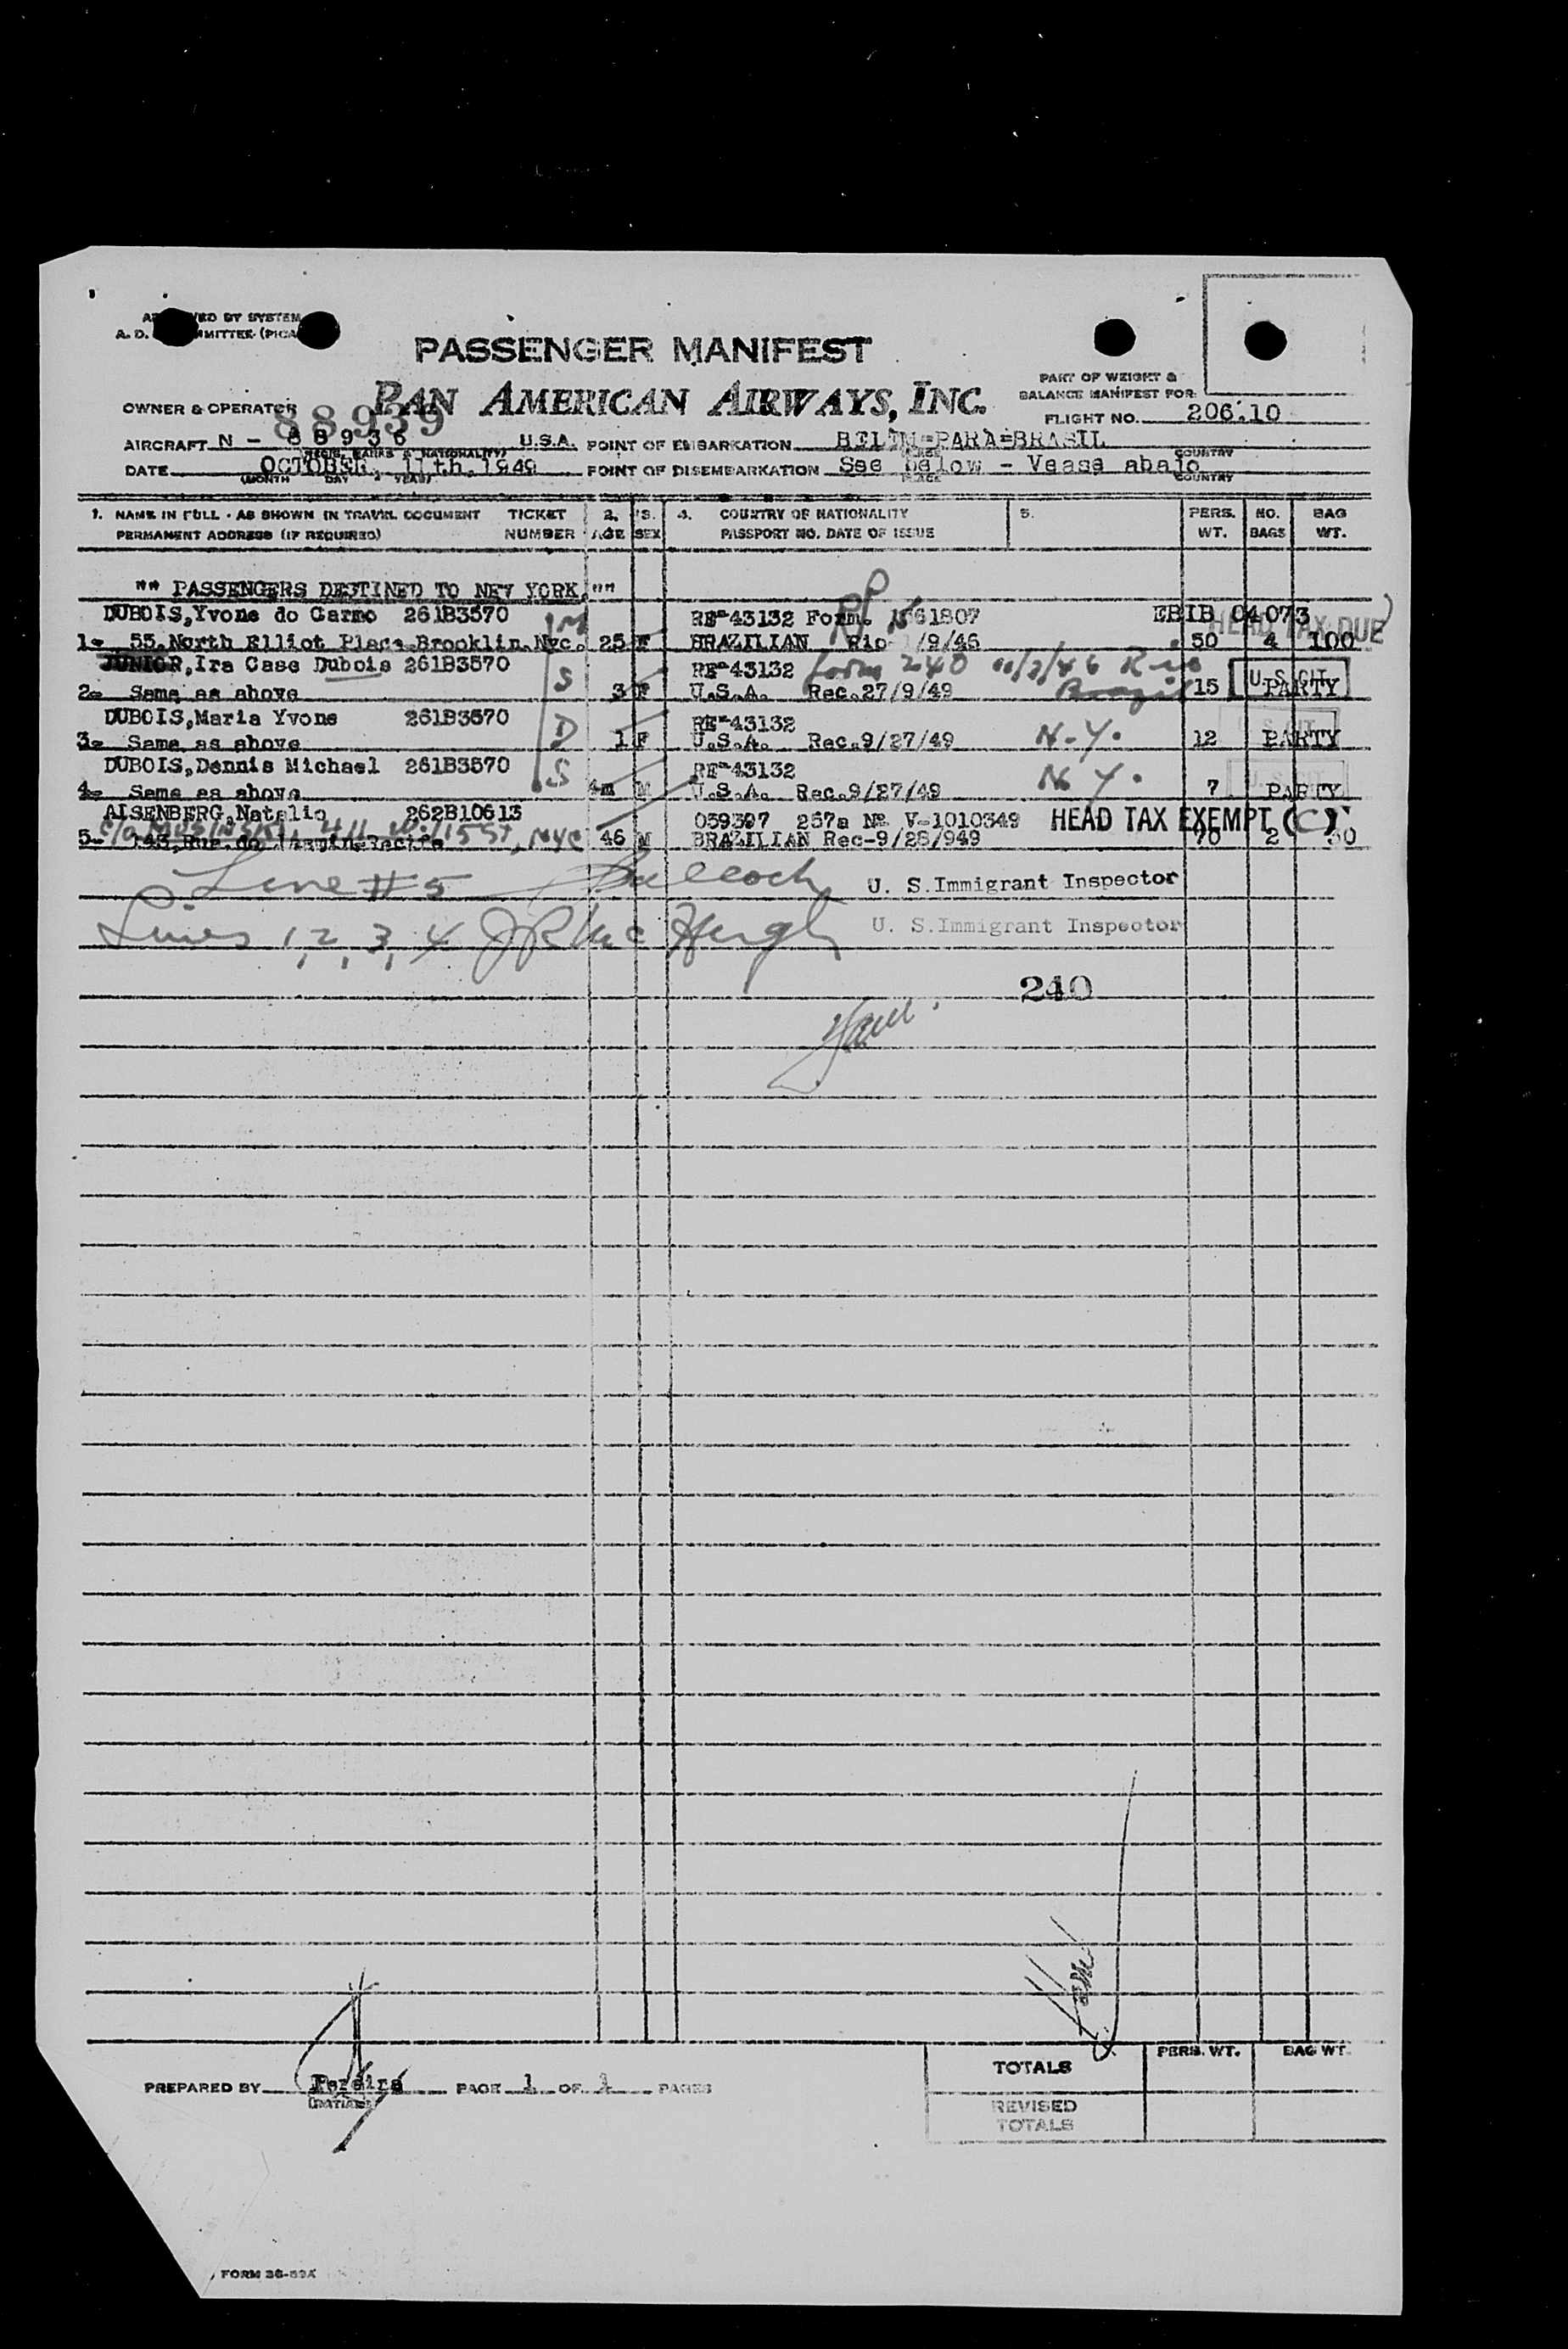 PASSENGER MANIFEST
PAN AMERICAN AIRWAYS, INC.
PART OF WEIGHT &
BALANCE MANIFEST FOR
OWNER & OPERATOR
88939
FLIGHT NO. 206.10
AIRCRAFT N - 88936 U.S.A. POINT OF EMBARKATION BELEM=PARA=BRASIL
DATE OCTOBER, 11th, 1949 POINT OF DISEMBARKATION See below - Vease abajo
(MONTH DAY YEAR) PLACE COUNTRY
1. NAME IN FULL - AS SHOWN IN TRAVEL DOCUMENT TICKET 2. 3. 4. COUNTRY OF NATIONALITY 5. PERS. NO. BAG
PERMANENT ADDRESS (IF REQUIRED) NUMBER AGE SEX PASSPORT NO. DATE OF ISSUE WT. BAGS WT.
"" PASSENGERS DESTINED TO NEW YORK ""
DUBOIS,Yvone do Carmo 261B3570 M RE-43132 Form. 1561807 EBIB 04073
HEAD TAX DUE
1= 55,North Elliot Place,Brooklin,Nyc. 25 F BRAZILIAN Rio /9/46 50 4 100
JUNIOR,Ira Case Dubois 261B3570 S RE-43132 Form 240 Rio
2= Same as above 3 F U.S.A. Rec.27/9/49 Brazil 15 U.S.CIT. PARTY
DUBOIS,Maria Yvone 261B3570 D RE-43132
3= Same as above 1 F U.S.A. Rec.9/27/49 N.Y. 12 U.S.CIT. PARTY
DUBOIS,Dennis Michael 261B3570 S RE-43132
4= Same as above 4m M U.S.A. Rec.9/27/49 N.Y. 7 U.S.CIT. PARTY
AISENBERG,Natalio 262B10613 059397 257a Nº V-1010349 HEAD TAX EXEMPT (C)
5- 46 M BRAZILIAN Rec-9/28/949 70 2 30
Line #5 Bulloch U. S.Immigrant Inspector
Lines 1, 2, 3, 4 J R Mc Hugh U. S.Immigrant Inspector
240
PREPARED BY Pereira PAGE 1 OF 1 PAGES
TOTALS PERS. WT. BAG WT.
REVISED
TOTALS